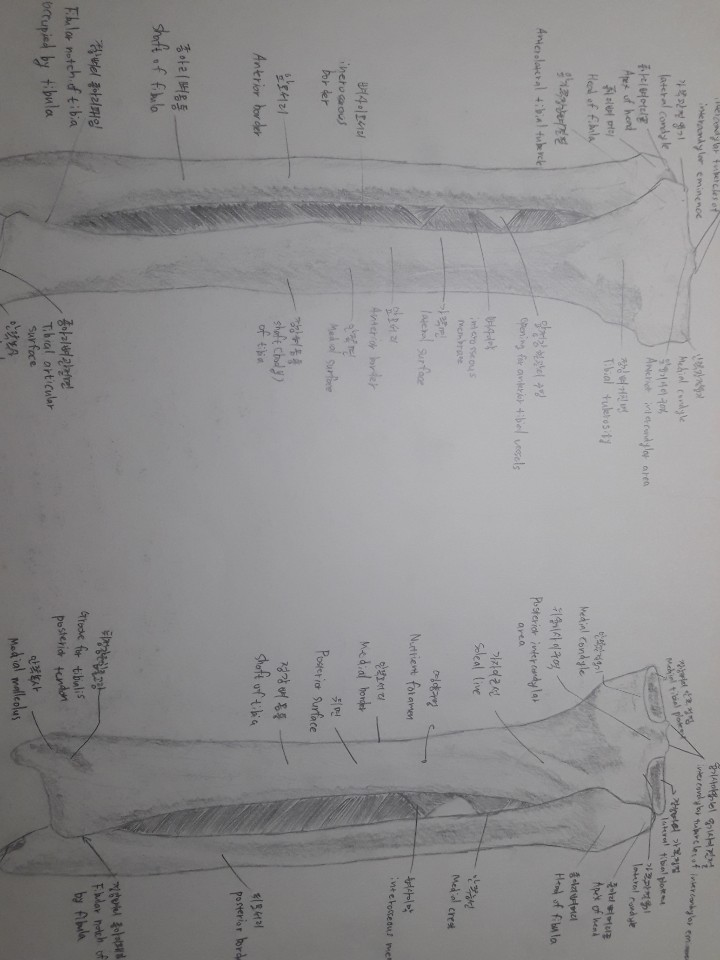 intercondylar eminence
가쪽관절융기
lateral condyle
Apex of head
종아리뼈머리
Head of fibula
Anterolateral tibial tubercle
뼈사이모서리
interosseous
border
앞모서리
Anterior border
종아리뼈몸통
shaft of fibula
정강뼈의 종아리패임
Fibular notch of tibia
occupied by fibula
안쪽관절융기
Medial condyle
앞융기사이구역
Anterior intercondylar area
정강뼈거친면
Tibial tuberosity
opening for anterior tibial vessels
뼈사이막
interosseous
membrane
가쪽면
lateral surface
앞모서리
Anterior border
안쪽면
Medial surface
정강뼈몸통
shaft (body)
of tibia
종아리뼈관절면
Tibial articular
surface
안쪽복사
융기사이융기의 융기사이결절
intercondylar tubercles of intercondylar eminence
Medial tibial plateau
안쪽관절융기
Medial condyle
뒤융기사이구역
Posterior intercondylar
area
가자미근선
Soleal line
영양구멍
Nutrient foramen
안쪽모서리
Medial border
뒤면
Posterior surface
정강뼈몸통
Shaft of tibia
Groove for tibialis
posterior tendon
안쪽복사
Medial malleolus
lateral tibial plateau
가쪽관절융기
lateral condyle
Apex of head
종아리뼈머리
Head of fibula
안쪽능선
Medial crest
뼈사이막
interosseous me
뒤모서리
posterior bord
정강뼈의 종아리패임
Fibular notch of
by fibula